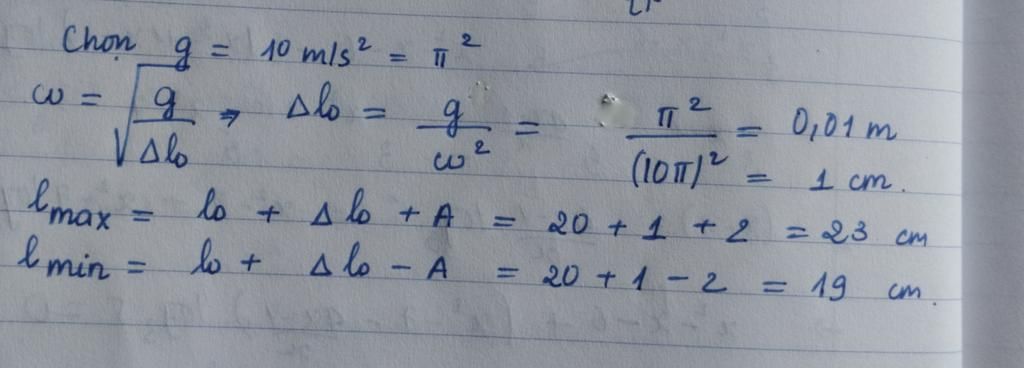 Chọn g = 10 m/s² = π²
ω = √(g/Δl₀) → Δl₀ = g/ω² = π²/(10π)² = 0,01 m
= 1 cm.
lmax = l₀ + Δl₀ + A = 20 + 1 + 2 = 23 cm
lmin = l₀ + Δl₀ - A = 20 + 1 - 2 = 19 cm.